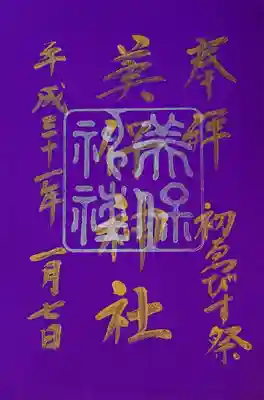 奉拝
初ゑびす祭
美保神社
平成三十一年 一月七日
美保
神社